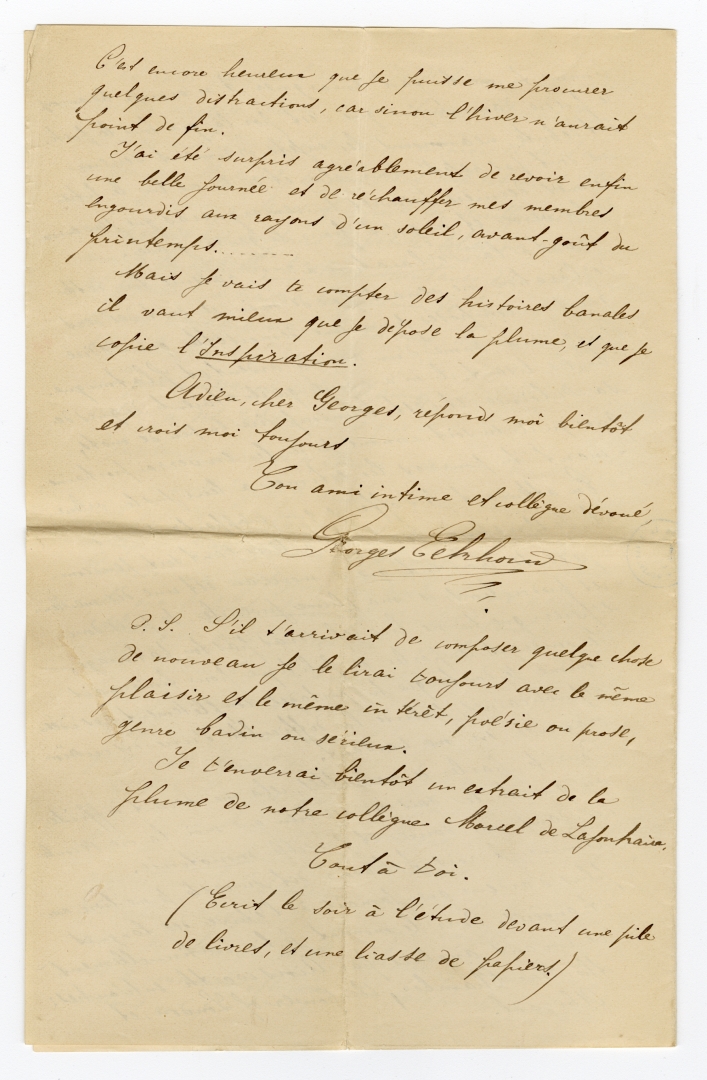 C'est encore heureux que je puisse me procurer
quelques distractions, car sinon l'hiver n'aurait
point de fin.
J'ai été surpris agréablement de revoir enfin
une belle journée et de réchauffer mes membres
engourdis aux rayons d'un soleil, avant-goût du
printemps........
Mais je vais te compter des histoires banales
il vaut mieux que je dépose la plume, et que je
copie l'Inspiration.
Adieu, cher Georges, réponds moi bientôt
et crois moi toujours
Ton ami intime et collègue dévoué,
Georges Eekhoud
P. S. S'il t'arrivait de composer quelque chose
de nouveau je le lirai toujours avec le même
plaisir et le même intérêt, poésie ou prose,
genre badin ou sérieux.
Je t'enverrai bientôt un extrait de la
plume de notre collègue Marcel de Lafontaine.
Tout à toi.
(Ecrit le soir à l'étude devant une pile
de livres, et une liasse de papiers.)